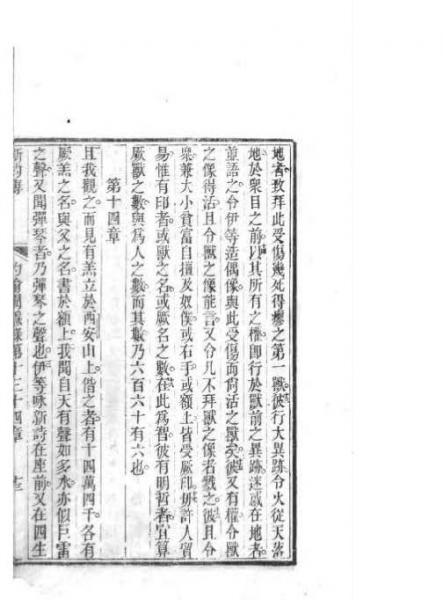 地者致拜此受傷幾死得瘳之第一獸彼行大異跡令火從天落
地於眾目之前因其所有之權卽行於獸前之異跡迷惑在地者
並語之令伊等造偶像與此受傷而尙活之獸矣彼又有權令獸
之像得活且令獸之像能言又令凡不拜獸之像者戮之彼且令
眾兼大小貧富自擅及奴僕或右手或額上皆受厥印毋許人買
易惟有印者或獸之名或厥名之數在此爲智彼有明哲者宜算
厥獸之數與爲人之數而其數乃六百六十有六也
第十四章
且我觀之而見有羔立於西安山上偕之者有十四萬四千各有
厥羔之名與父之名書於額上我聞自天有聲如多水亦似巨雷
之聲又聞彈琴者乃彈琴之聲也伊等咏新詩在座前又在四生
十三十四章 十三